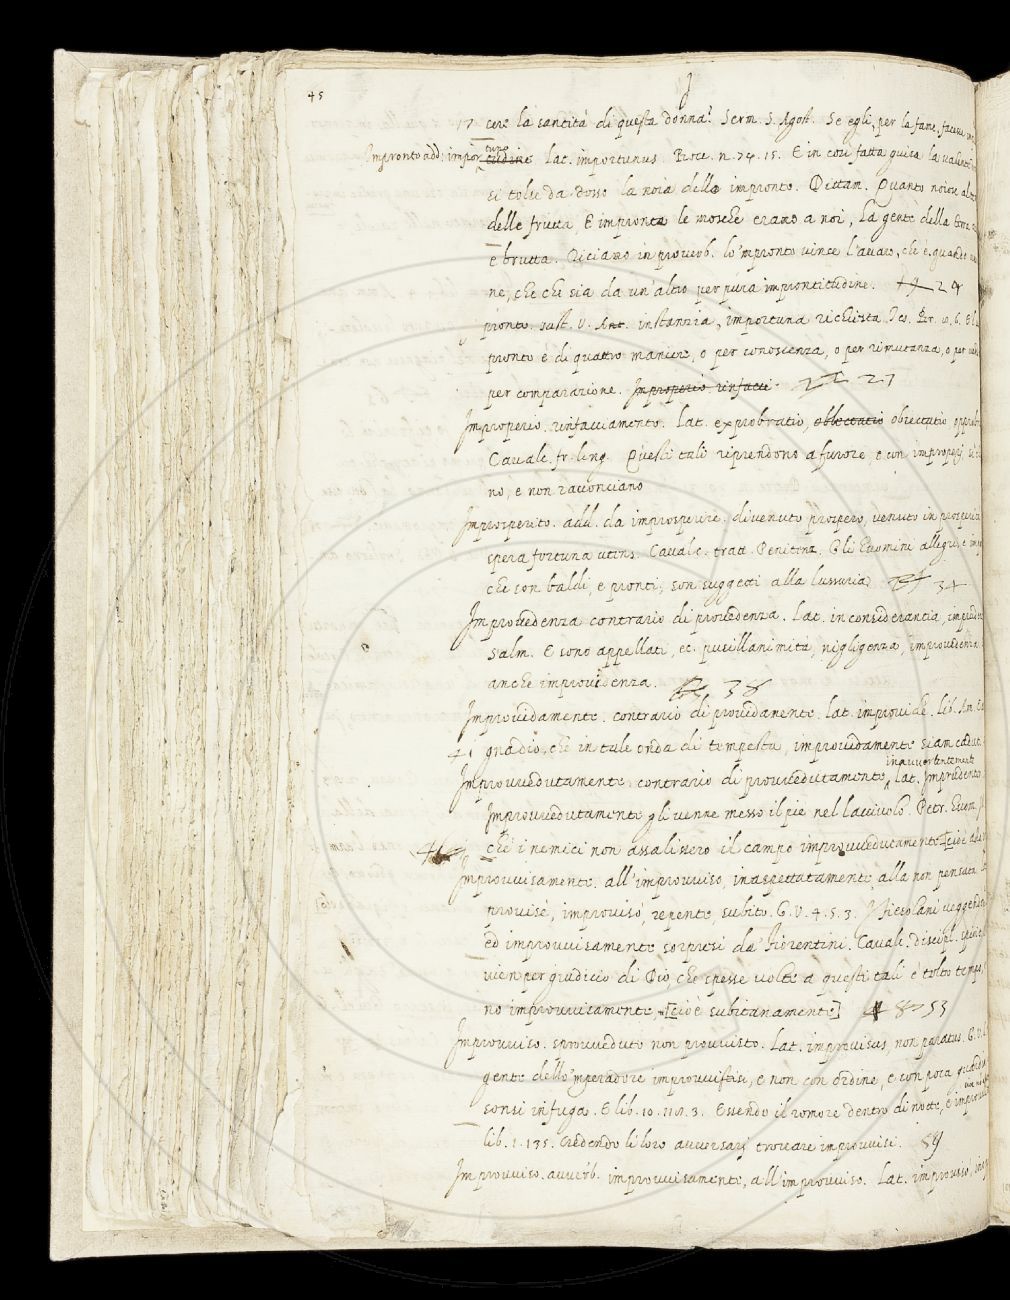 45
J
17 cere la santità di questa donna? Serm. S. Agost. Se egli, per la fame, facesse
Impronto add: impor tuno Lat. importunus. Bocc. n. 74. 15. E in così fatta guisa la valente
si tolse da dosso la noia dello impronto. Dittam. Quanto noiose al
delle frutta, E impronta le mosche erano a noi, La gente della terra
e brutta. Diciamo in proverb. lo 'mpronto vince l'avaro, ch' è quando
ne, che che sia da un' altro per pura improntitudine. 24
pronto. sust. V. Ant. instanzia, importuna richiesta Tes. Br. 6.
pronto è di quattro maniere, o per conoscenza, o per rimutanza, o per
per comparazione. Improperio rinfacci 27
Improperio. rinfacciamento. Lat. exprobratio, oblectatio obiectatio
Cavalc. fr. ling. Questi tali riprendono a furore, e con improperj
no, e non racconciano
Improsperito. add. da improsperire. divenuto prospero, venuto in prosperità
spera fortuna utens. Cavalc. tratt. Penitenz. Gli huomini allegri, e
che son baldi, e pronti, son suggetti alla lussuria 34
Improvedenza contrario di provedenza. Lat. inconsiderantia,
Salm. E sono appellati, ec. pusillanimità, nigligenza, improvedenza
anche improvidenza. 38
Improvedamente. contrario di provedamente. Lat. improvide. Lib. Am.
41 gnadio, che in tale onda di tempesta, improvedamente siam
inavvertentemente
Improvvedutamente. contrario di provvedutamente, Lat. imprudente
Improvvedutamente gli venne messo il piè nel lacciuolo. Petr. huom.
che i nemici non assalissero il campo improvvedutamente [cioè
Improvvisamente. all'improvviso, inaspettatamente, alla non pensata
provise, improviso, repente, subito. G. V. 4. 5. 3. I Fiesolani veggendosi
ed improvvisamente sorpresi da' Fiorentini. Cavalc. discipl.
vien per giudicio di Dio, che spesse volte a questi tali è tolto
no improvvisamente, [cioè subitanamente] 53
Improvviso. sprovveduto non provvisto. Lat. improvisus, non paratus. G. V.
gente dello 'mperadore improvvisti, e non con ordine, e con poca
sonsi in fuga. E lib. 10. 119. 3. Essendo il romore dentro di notte, e
lib. 1. 135. Credendo li loro avversarj trovare improvvisi. 59
Improvviso. avverb. improvvisamente, all'improvviso. Lat. improviso,